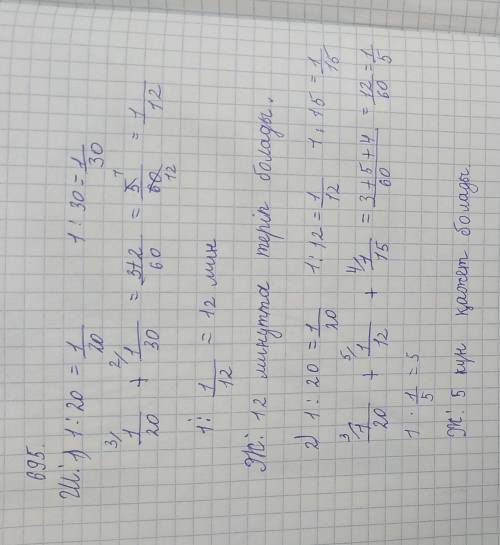 695.
Ш: 1) 1 : 20 = 1/20    1 : 30 = 1/30
³⁾1/20 + ²⁾1/30 = 3+2/60 = 5¹/60₁₂ = 1/12
1 : 1/12 = 12 мин
Ж: 12 минутта теріп болады.
2) 1 : 20 = 1/20    1 : 12 = 1/12    1 : 15 = 1/15
³⁾1/20 + ⁵⁾1/12 + ⁴⁾1/15 = 3+5+4/60 = 12/60 = 1/5
1 : 1/5 = 5
Ж: 5 күн қажет болады.